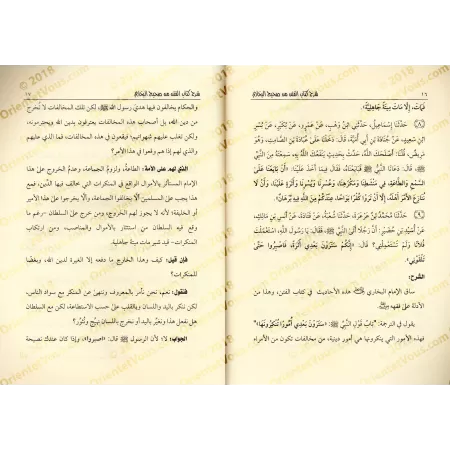 ١٦ شرح كتاب الفتن من صحيح البخاري
فَمَاتَ، إِلَّا مَاتَ مِيتَةً جَاهِلِيَّةً».
حَدَّثَنَا إِسْمَاعِيلُ، حَدَّثَنِي ابْنُ وَهْبٍ، عَنْ عَمْرٍو، عَنْ بُكَيْرٍ، عَنْ بُسْرِ
بْنِ سَعِيدٍ، عَنْ جُنَادَةَ بْنِ أَبِي أُمَيَّةَ، قَالَ: دَخَلْنَا عَلَى عُبَادَةَ بْنِ الصَّامِتِ، وَهُوَ
مَرِيضٌ، قُلْنَا: أَصْلَحَكَ اللَّهُ، حَدِّثْ بِحَدِيثٍ يَنْفَعُكَ اللَّهُ بِهِ، سَمِعْتَهُ مِنَ النَّبِيِّ
ﷺ، قَالَ: دَعَانَا النَّبِيُّ ﷺ فَبَايَعْنَاهُ، فَقَالَ فِيمَا أَخَذَ عَلَيْنَا: «أَنْ بَايَعَنَا عَلَى
السَّمْعِ وَالطَّاعَةِ، فِي مَنْشَطِنَا وَمَكْرَهِنَا، وَعُسْرِنَا وَيُسْرِنَا وَأَثَرَةً عَلَيْنَا، وَأَنْ لَا
نُنَازِعَ الْأَمْرَ أَهْلَهُ، إِلَّا أَنْ تَرَوْا كُفْرًا بَوَاحًا، عِنْدَكُمْ مِنَ اللَّهِ فِيهِ بُرْهَانٌ».
حَدَّثَنَا مُحَمَّدُ بْنُ عَرْعَرَةَ، حَدَّثَنَا شُعْبَةُ، عَنْ قَتَادَةَ، عَنْ أَنَسِ بْنِ مَالِكٍ،
عَنْ أُسَيْدِ بْنِ حُضَيْرٍ: أَنَّ رَجُلًا أَتَى النَّبِيَّ ﷺ، فَقَالَ: يَا رَسُولَ اللَّهِ، اسْتَعْمَلْتَ
فُلَانًا وَلَمْ تَسْتَعْمِلْنِي؟ قَالَ: «إِنَّكُمْ سَتَرَوْنَ بَعْدِي أَثَرَةً، فَاصْبِرُوا حَتَّى
تَلْقَوْنِي».
الشرح:
ساق الإمام البخاري هذه الأحاديث في كتاب الفتن، وهذا من
الأدلة على فقهه
يقول في الترجمة: "بَابُ قَوْلِ النَّبِيِّ ﷺ: «سَتَرَوْنَ بَعْدِي أُمُورًا تُنْكِرُونَهَا»"
فهذه الأمور التي ينكرونها هي أمور دينية، من مخالفات تكون من الأمراء
شرح كتاب الفتن من صحيح البخاري ١٧
والحكام يخالفون فيها هدي رسول الله ﷺ، لكن تلك المخالفات لا تُخرج
من دين الله، بل أصحاب هذه المخالفات يعترفون بدين الله ويحترمونه،
ولكن تغلب عليهم شهواتهم؛ فيقعون في هذه المخالفات؛ فما الذي عليهم
والذي لهم إذا هم وقعوا في هذا الأمر؟
الذي لهم على الأمة: الطاعة، ولزوم الجماعة، وعدم الخروج على هذا
الإمام المستأثر بالأموال الواقع في المنكرات التي يخالف فيها الدِّين، فمع
هذا يجب على المسلمين ألا يخالفوا الجماعة، وألا يخرجوا على هذا الأمير
أو الخليفة؛ لأنه لا يجوز لهم الخروج، ومن خرج على السلطان -رغم ما
وقع فيه السلطان من استئثار بالأموال والمناصب، ومن ارتكاب
المنكرات- قيد شبر مات ميتة جاهلية.
فإن قيل: كيف وهذا الخارج ما دفعه إلا الغيرة لدين الله، وبغضًا
للمنكرات؟
فنقول: نعم، نحن نأمر بالمعروف وننهى عن المنكر مع سواد الناس،
لكن ننكر باليد واللسان وبالقلب على حسب الاستطاعة، ولكن مع السلطان
هل نفعل هذا ونغيِّر باليد أو نخرج باللسان نهيج ونُثَوِّر؟
الجواب: لا؛ لأن الرسول ﷺ قال: «اصبروا»، وإذا كان عندك نصيحة
OrientVous.com © 2018